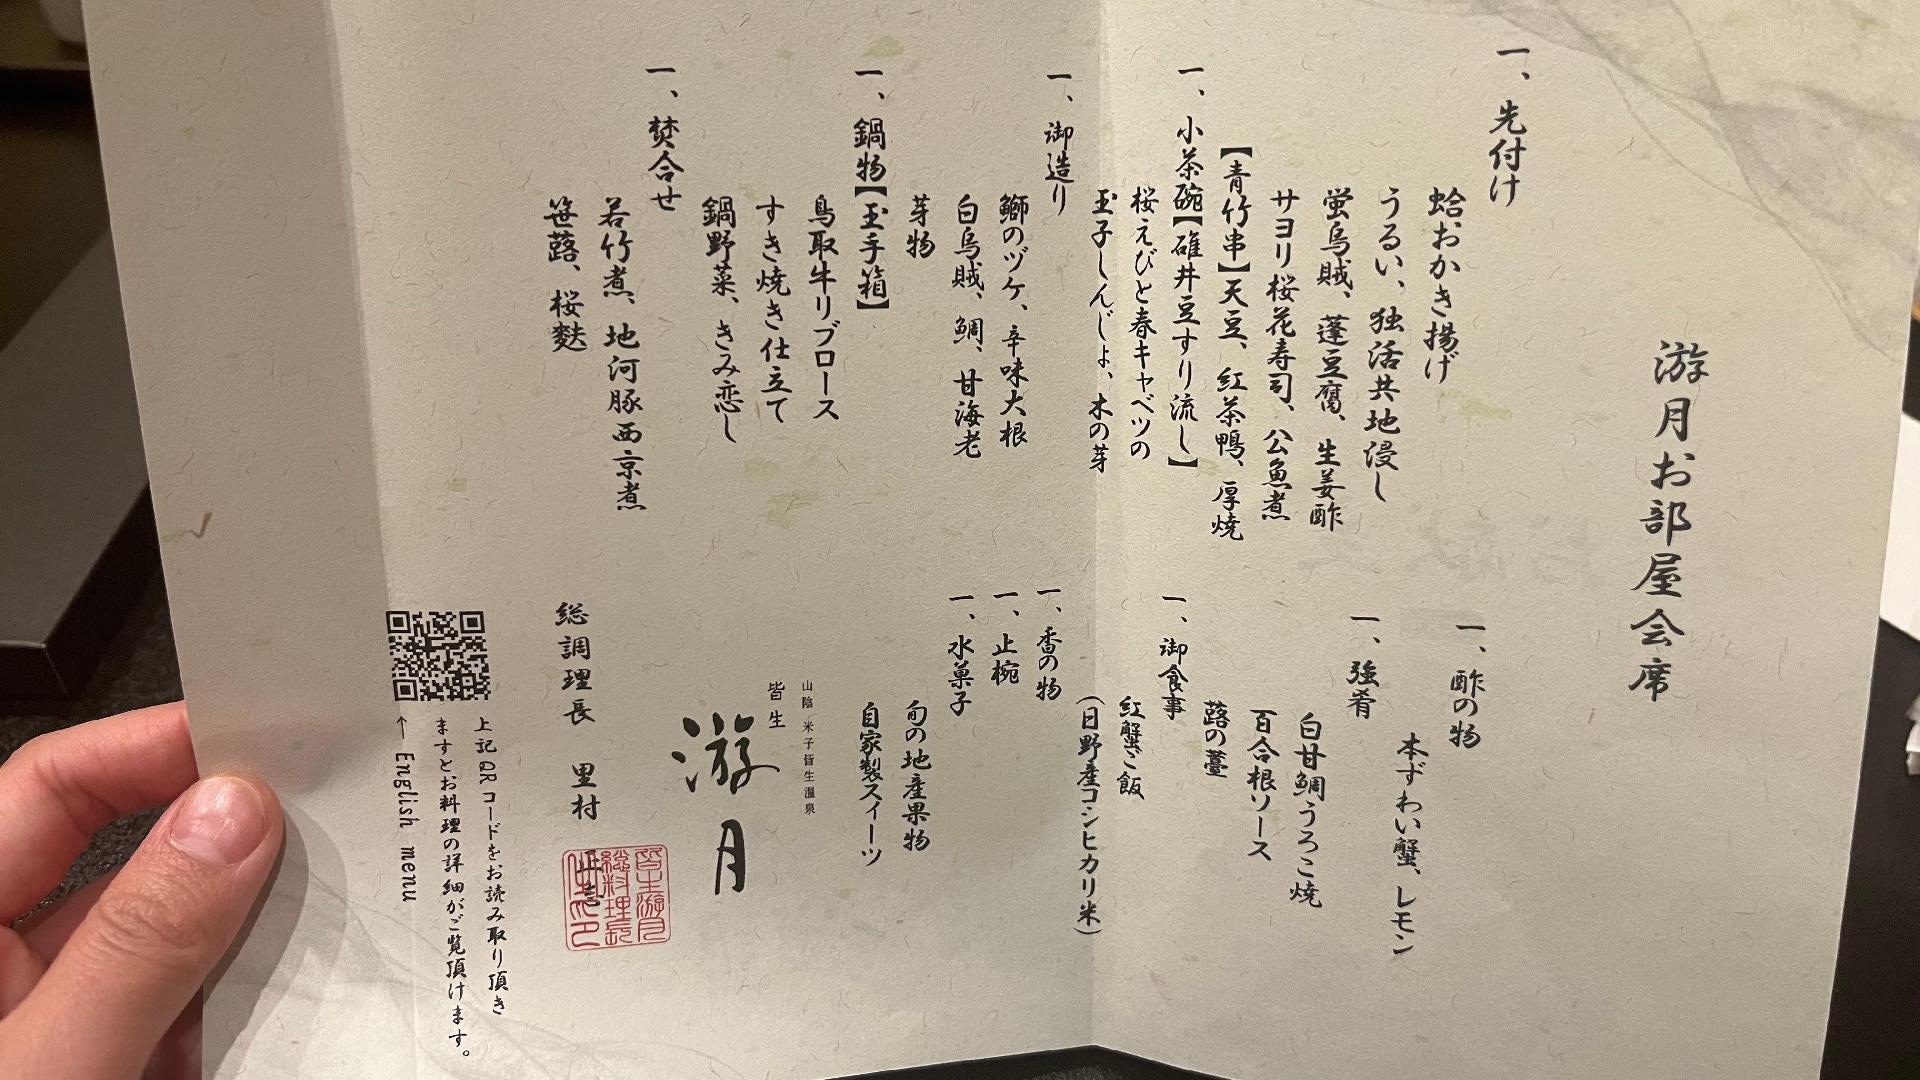 游月お部屋会席
一、先付け
蛤おかき揚げ
うるい、独活共地浸し
蛍烏賊、蓬豆腐、生姜酢
サヨリ桜花寿司、公魚煮
【青竹串】天豆、紅茶鴨、厚焼
一、小茶碗【碓井豆すり流し】
桜えびと春キャベツの
玉子しんじょ、木の芽
一、御造り
鰤のヅケ、辛味大根
白烏賊、鯛、甘海老
芽物
一、鍋物【玉手箱】
鳥取牛リブロース
すき焼き仕立て
鍋野菜、きみ恋し
一、焚合せ
若竹煮、地河豚西京煮
笹蕗、桜麩
一、酢の物
本ずわい蟹、レモン
一、強肴
白甘鯛うろこ焼
百合根ソース
蕗の薹
一、御食事
紅蟹ご飯
(日野産コシヒカリ米)
一、香の物
一、止椀
一、水菓子
旬の地産果物
自家製スイーツ
山陰 米子皆生温泉
皆生
游月
総調理長 里村
上記QRコードをお読み取り頂き
ますとお料理の詳細がご覧頂けます。
← English menu